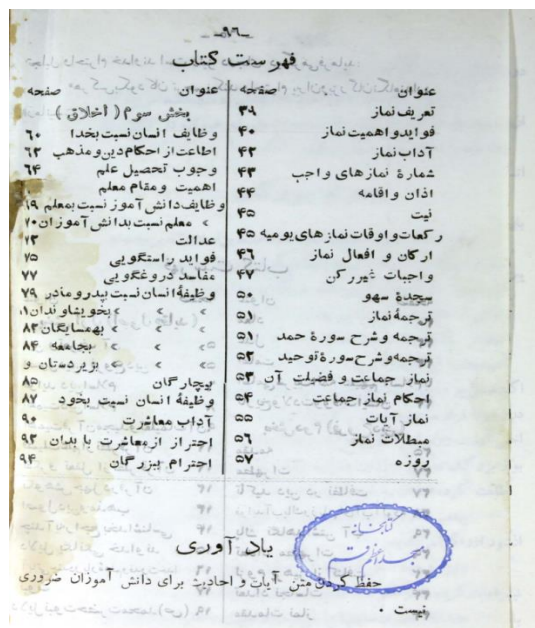 -۹۶-
فهرست کتاب
عنوان صفحه
تعریف نماز ۳۹
فواید و اهمیت نماز ۴۰
آداب نماز ۴۲
شمارهٔ نمازهای واجب ۴۳
اذان و اقامه ۴۴
نیت ۴۵
رکعات و اوقات نمازهای یومیه ۴۵
ارکان و افعال نماز ۴۶
واجبات غیررکن ۴۷
سجدهٔ سهو ۵۰
ترجمهٔ نماز ۵۱
ترجمه و شرح سورهٔ حمد ۵۱
ترجمه و شرح سورهٔ توحید ۵۲
نماز جماعت و فضیلت آن ۵۳
احکام نماز جماعت ۵۴
نماز آیات ۵۵
مبطلات نماز ۵۶
روزه ۵۷
عنوان صفحه
بخش سوم (اخلاق)
وظایف انسان نسبت بخدا ۶۰
اطاعت از احکام دین و مذهب ۶۲
وجوب تحصیل علم ۶۴
اهمیت و مقام معلم
وظایف دانش آموز نسبت بمعلم ۶۹
» معلم نسبت بدانش آموزان ۷۰
عدالت ۷۳
فواید راستگویی ۷۵
مفاسد دروغگویی ۷۷
وظیفهٔ انسان نسبت بپدر و مادر ۷۹
» » » بخویشاوندان
» » » بهمسایگان ۸۳
» » » بجامعه ۸۴
» » » بزیردستان و
بیچارگان ۸۵
وظیفهٔ انسان نسبت بخود ۸۷
آداب معاشرت ۹۰
احتراز از معاشرت با بدان ۹۳
احترام بزرگان ۹۴
یادآوری
حفظ کردن متن آیات و احادیث برای دانش آموزان ضروری
نیست .
کتابخانه
مسجد اعظم قم